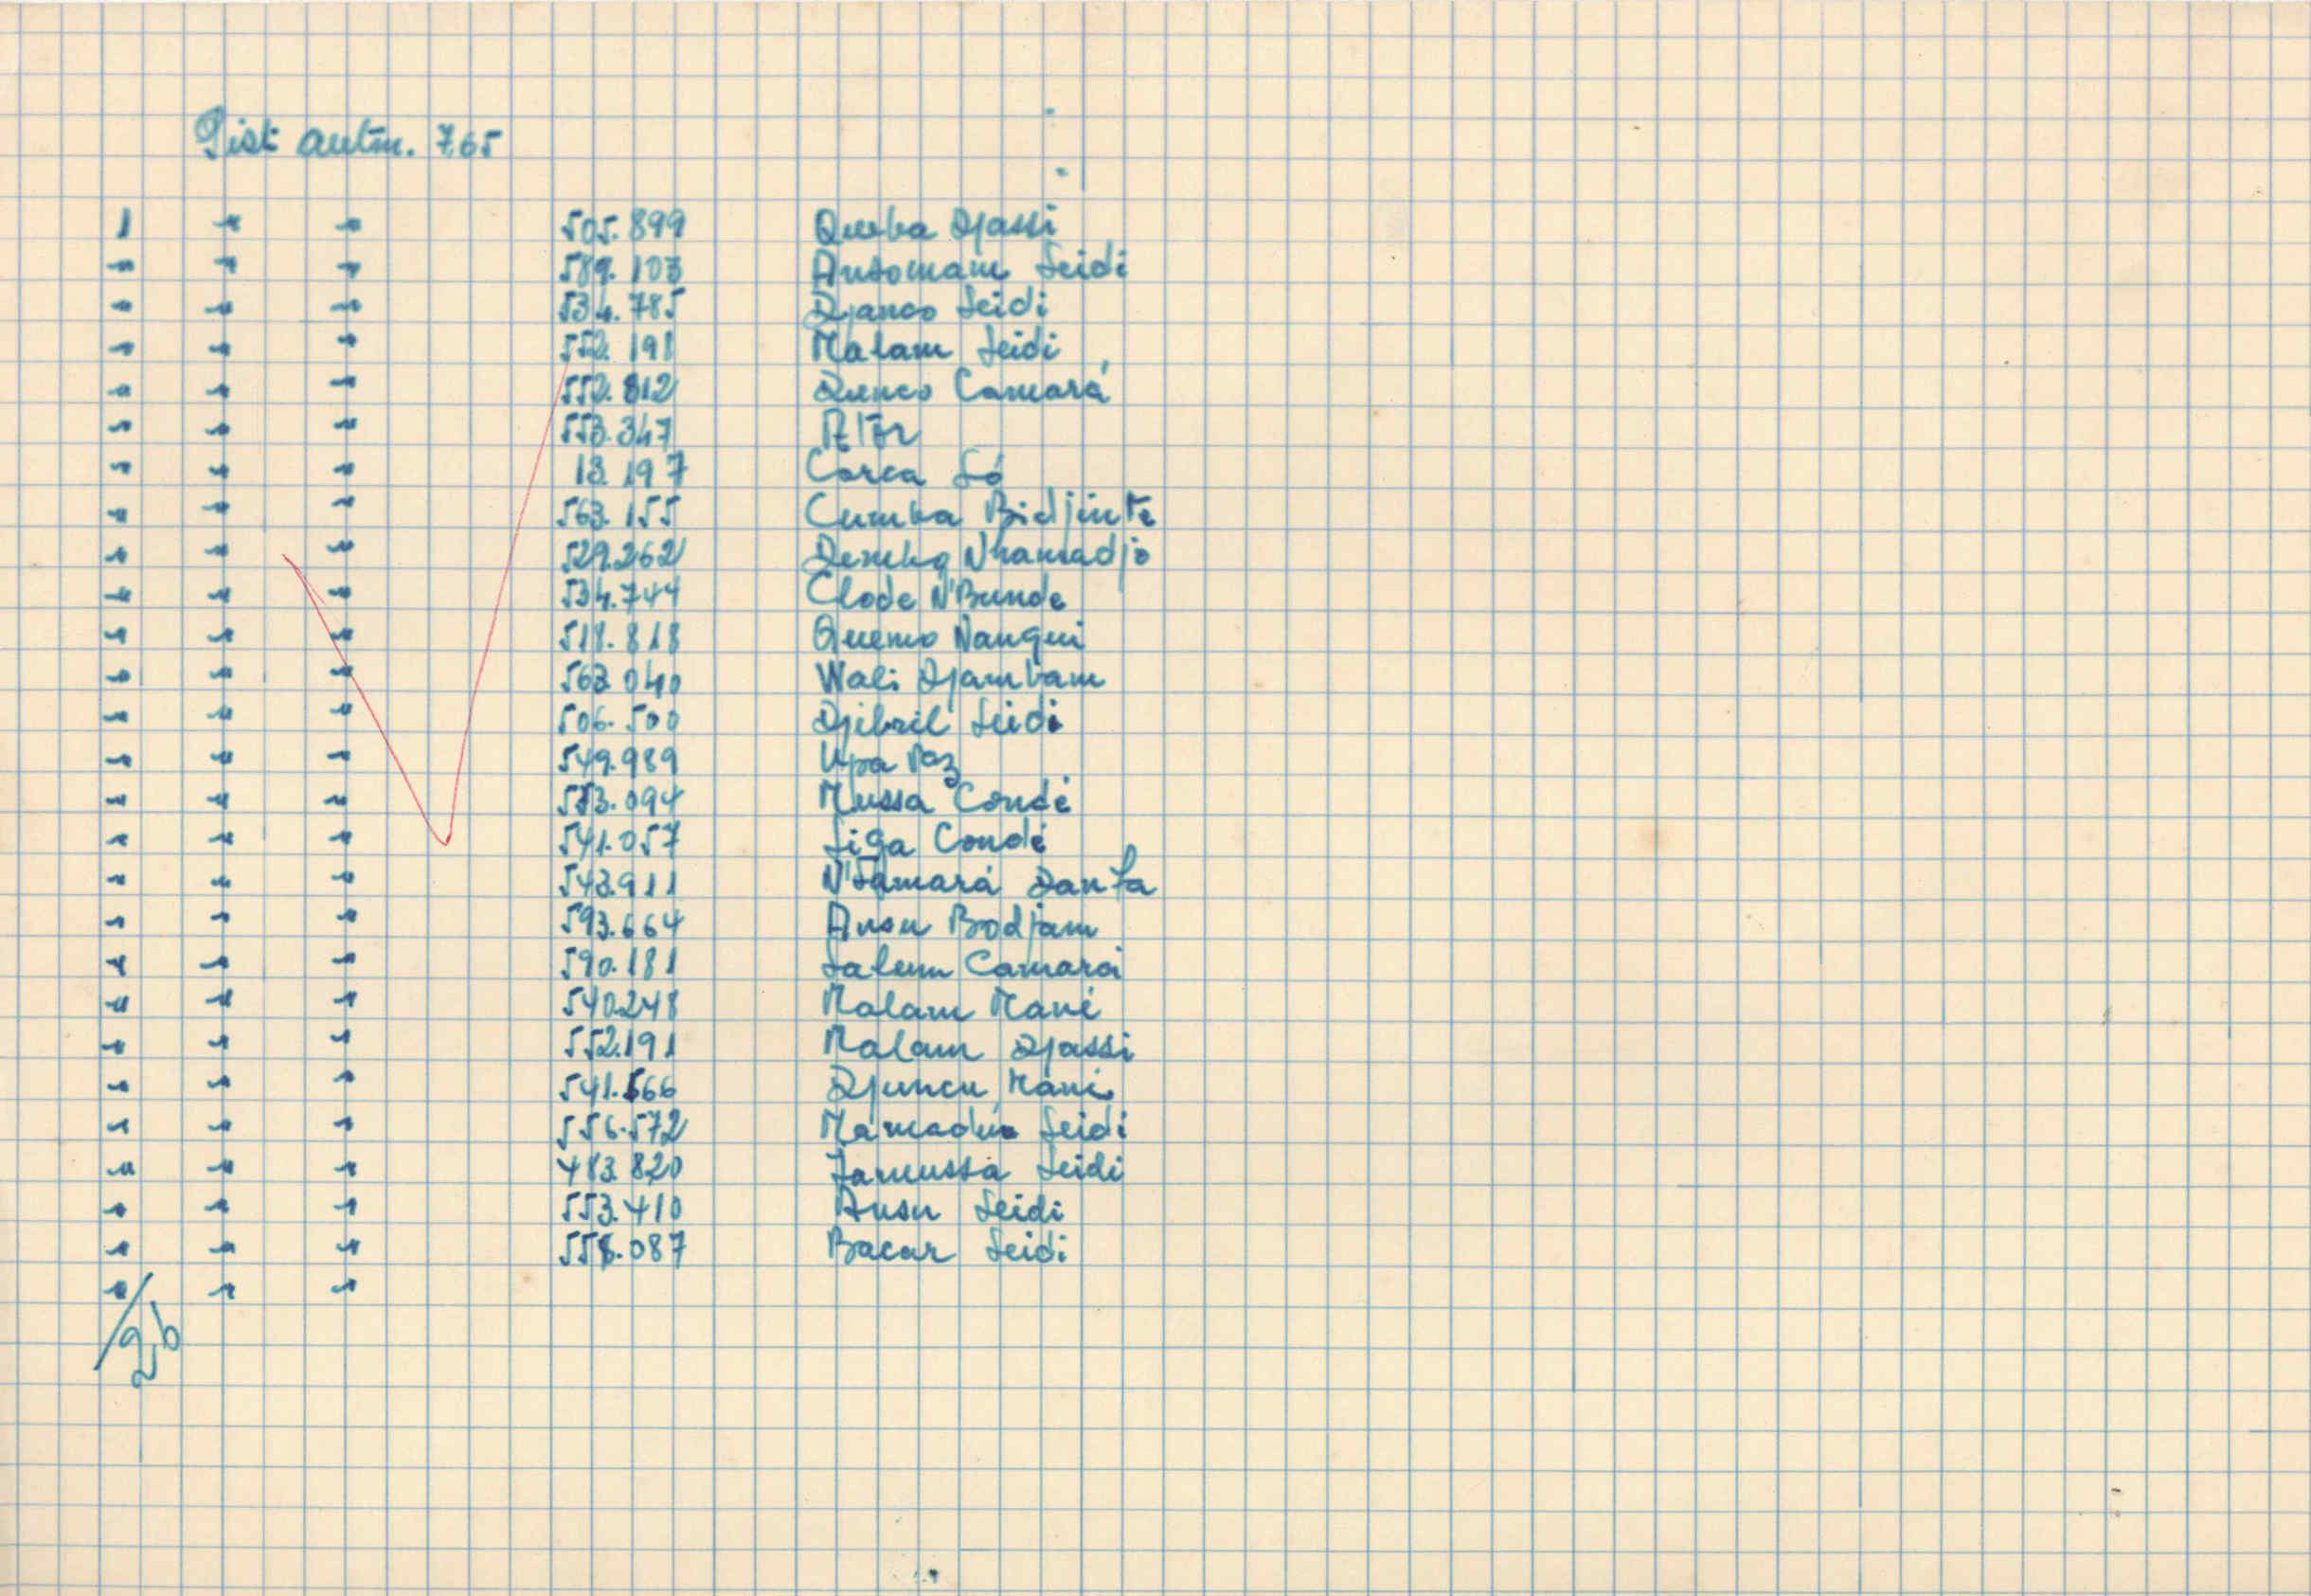 Pist. autm. 7,65
1 " " 505.899 Queba Djassi
" " " 589.103 Ansomam Seidi
" " " 534.785 Djanco Seidi
" " " 552.191 Malam Seidi
" " " 552.812 Quenco Camará
" " " 553.347
" " " 13.197 Corca Só
" " " 563.155 Cumba Bidjinte
" " " 529.262 Demba Nhamadjo
" " " 534.744 Clode N'Bunde
" " " 518.818 Quemo Nanqui
" " " 563.040 Wali Djambam
" " " 506.500 Djibril Seidi
" " " 549.989 Upa Paz
" " " 553.094 Mussa Condé
" " " 541.057 Siga Condé
" " " 543.911 N'Famará Danfa
" " " 593.664 Ansu Bodjam
" " " 590.181 Salum Camará
" " " 540.248 Malam Mané
" " " 552.191 Malam Djassi
" " " 541.566 Djuncu Mané
" " " 556.572 Mamadú Seidi
" " " 483.820 Famussa Seidi
" " " 553.410 Ansu Seidi
" " " 087 Bacar Seidi
" " "